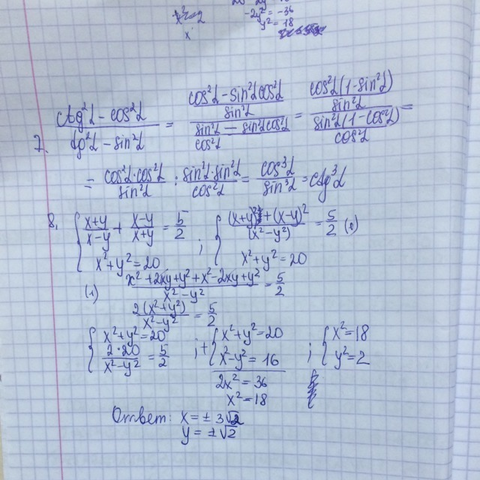 x²=2
-2y² = -36
y² = 18
x
7. (ctg²α - cos²α)/(tg²α - sin²α) = ((cos²α - sin²α cos²α)/sin²α)/((sin²α - sin²α cos²α)/cos²α) = (cos²α(1-sin²α)/sin²α)/(sin²α(1-cos²α)/cos²α) =
= cos²α·cos²α/sin²α : sin²α·sin²α/cos²α = cos³α/sin³α = ctg³α
8. { (x+y)/(x-y) + (x-y)/(x+y) = 5/2 ; { ((x+y)²+(x-y)²)/(x²-y²) = 5/2 (2)
x²+y² = 20 x²+y² = 20
(1) (x²+2xy+y²+x²-2xy+y²)/(x²-y²) = 5/2
2(x²+y²)/(x²-y²) = 5/2
{ x²+y² = 20 ; + { x²+y² = 20 ; { x² = 18
2·20/(x²-y²) = 5/2 x²-y² = 16 y² = 2
2x² = 36
x² = 18
Ответ: x = ± 3√2
y = ±√2